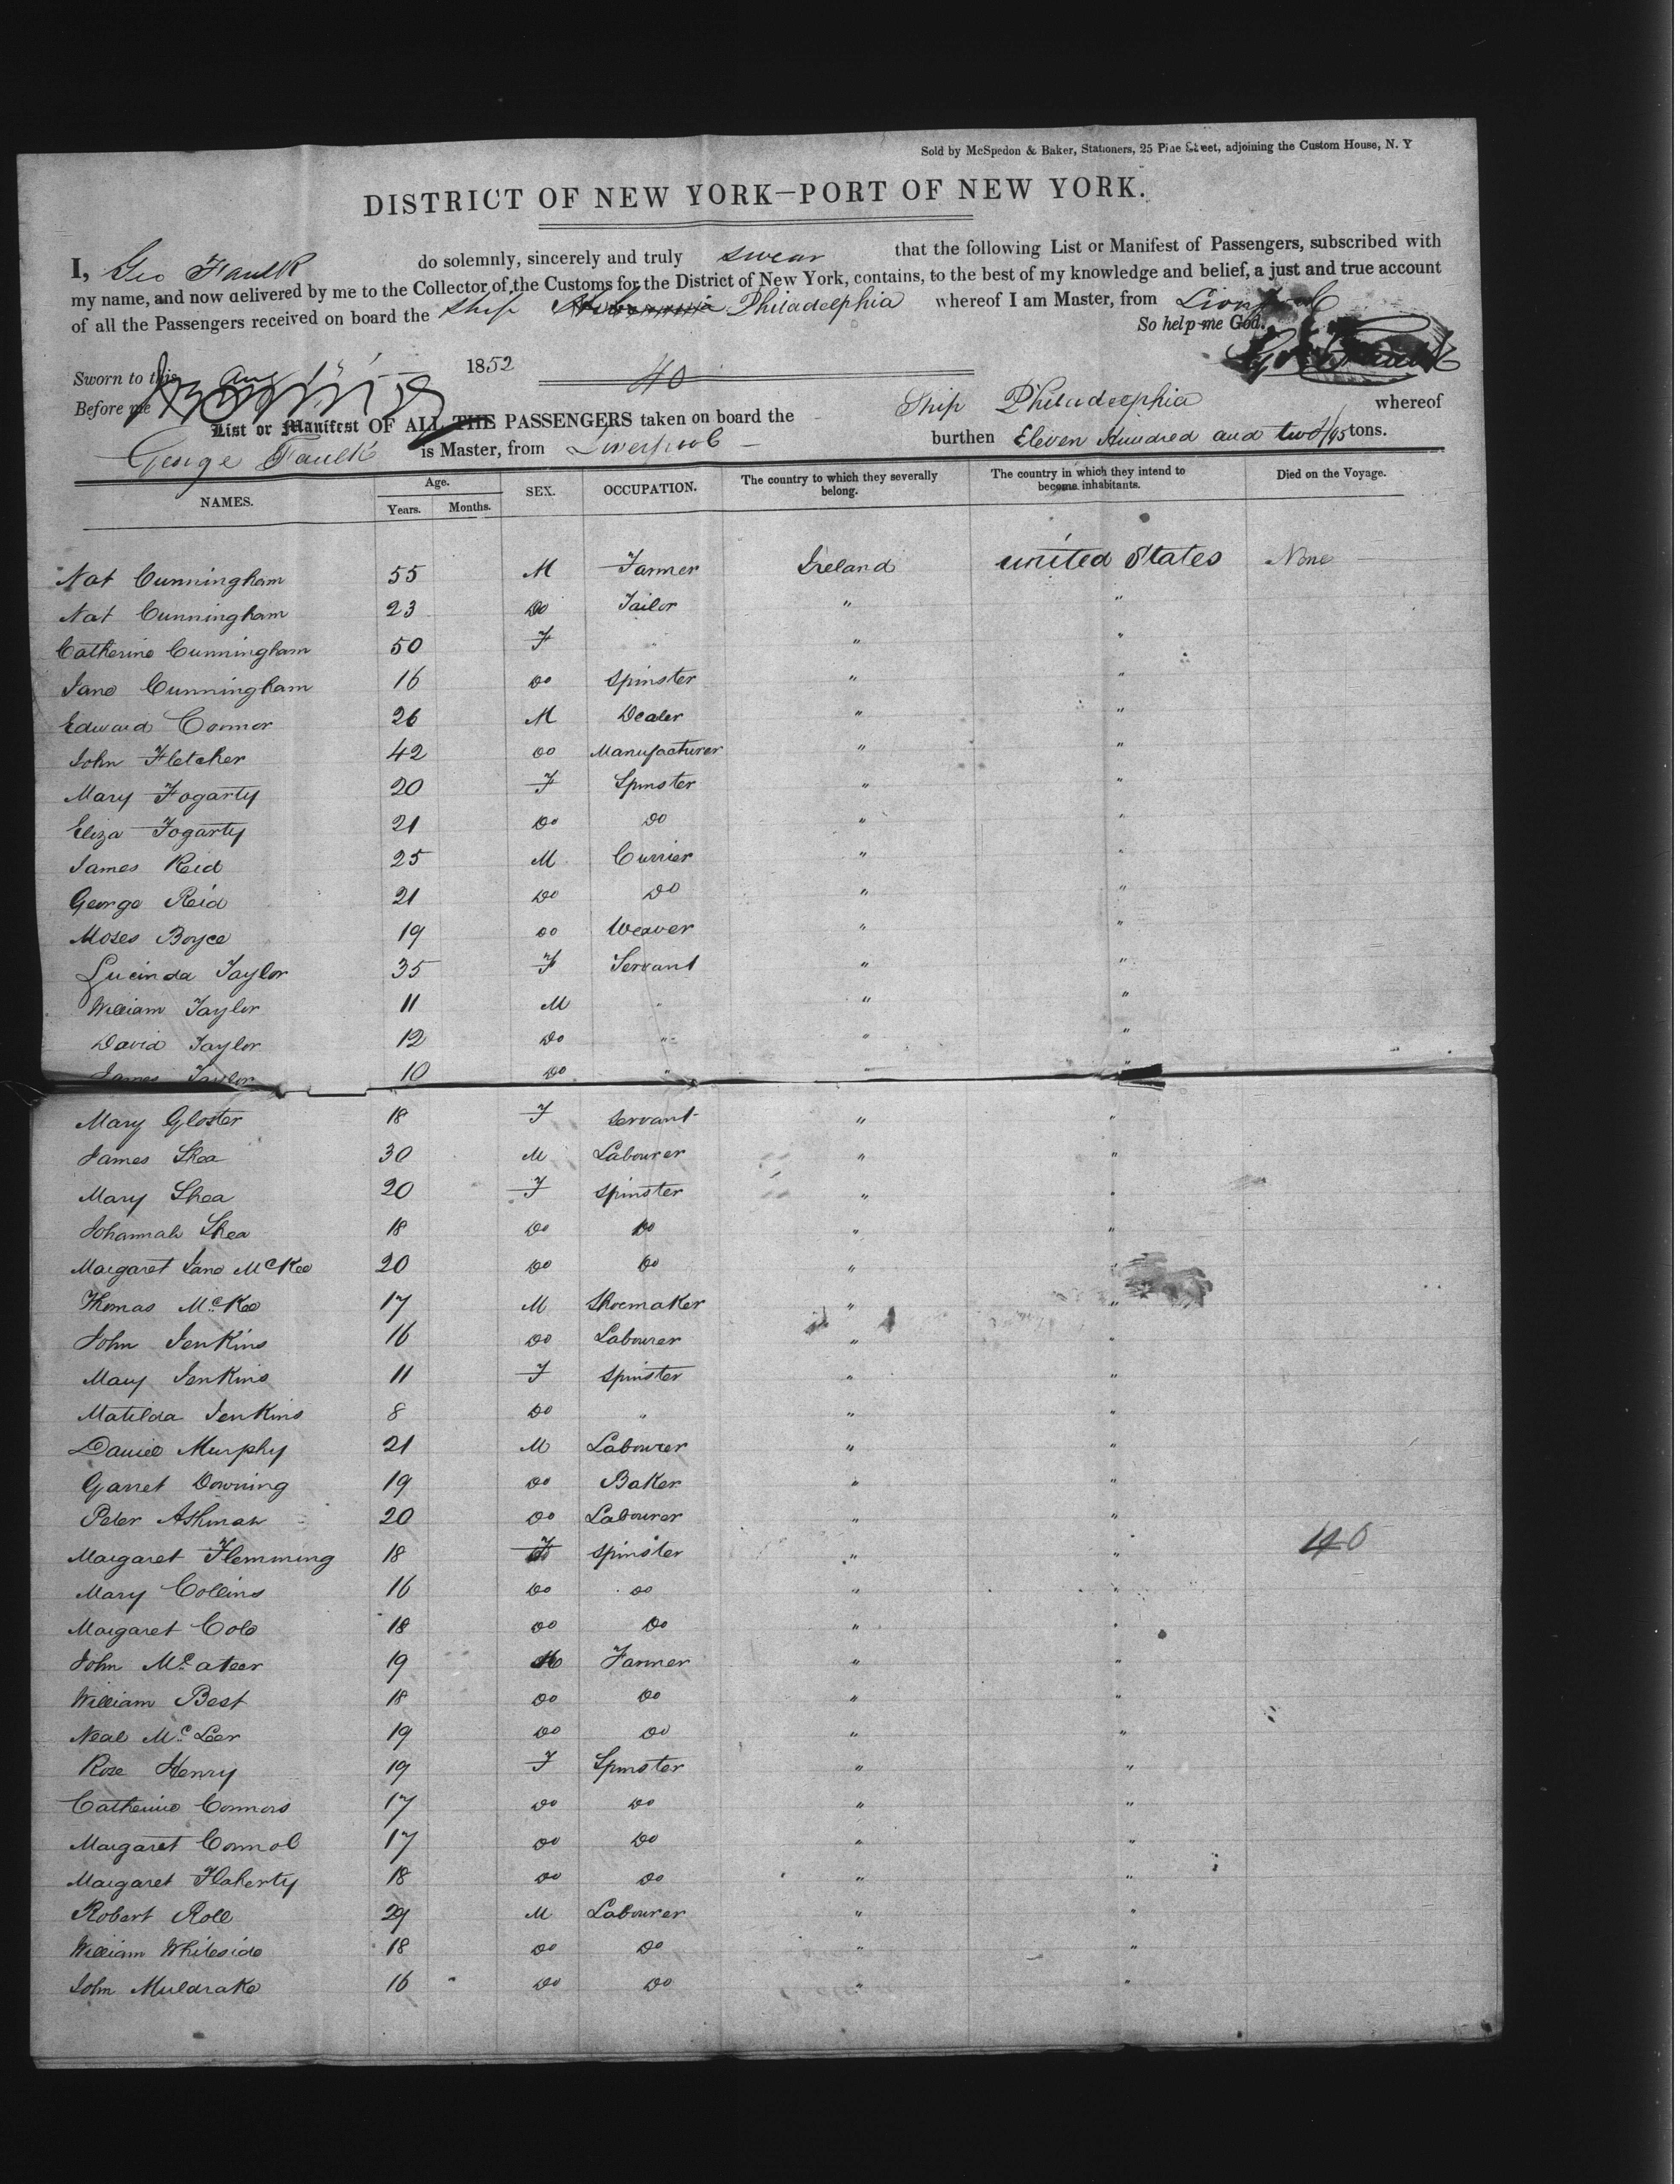 Sold by McSpedon & Baker, Stationers, 25 Pine Street, adjoining the Custom House, N. Y
DISTRICT OF NEW YORK—PORT OF NEW YORK.
I, Geo Faulk do solemnly, sincerely and truly swear that the following List or Manifest of Passengers, subscribed with
my name, and now delivered by me to the Collector of the Customs for the District of New York, contains, to the best of my knowledge and belief, a just and true account
of all the Passengers received on board the Ship Philadelphia whereof I am Master, from Liverpool
So help me God.
Sworn to this Aug 1852
Before me 40
List or Manifest OF ALL THE PASSENGERS taken on board the Ship Philadelphia whereof
George Faulk is Master, from Liverpool — burthen Eleven Hundred and two /95 tons.
NAMES. Age. Years. Months. SEX. OCCUPATION. The country to which they severally belong. The country in which they intend to become inhabitants. Died on the Voyage.
Nat Cunningham 55 M Farmer Ireland United States None
Nat Cunningham 23 Do Tailor " "
Catherine Cunningham 50 F " " "
Jane Cunningham 16 Do Spinster " "
Edward Connor 26 M Dealer " "
John Fletcher 42 Do Manufacturer " "
Mary Fogarty 20 F Spinster " "
Eliza Fogarty 21 Do Do " "
James Reid 25 M Currier " "
George Reid 21 Do Do " "
Moses Boyce 19 Do Weaver " "
Lucinda Taylor 35 F Servant " "
William Taylor 11 M " " "
David Taylor 12 Do " " "
James Taylor 10 Do " " "
Mary Gloster 18 F Servant " "
James Shea 30 M Labourer " "
Mary Shea 20 F Spinster " "
Johannah Shea 18 Do Do " "
Margaret Jane McKee 20 Do Do " "
Thomas McKee 17 M Shoemaker " "
John Jenkins 16 Do Labourer " "
Mary Jenkins 11 F Spinster " "
Matilda Jenkins 8 Do " " "
Daniel Murphy 21 M Labourer " "
Garret Downing 19 Do Baker " "
Peter Ashman 20 Do Labourer " "
Margaret Flemming 18 F Spinster " " 40
Mary Collins 16 Do Do " "
Margaret Cole 18 Do Do " "
John McAteer 19 M Farmer " "
William Best 18 Do Do " "
Neal McLeer 19 Do Do " "
Rose Henry 19 F Spinster " "
Catherine Connors 17 Do Do " "
Margaret Connol 17 Do Do " "
Margaret Flaherty 18 Do Do " "
Robert Roll 29 M Labourer " "
William Whiteside 18 Do Do " "
John Muldrake 16 Do Do " "